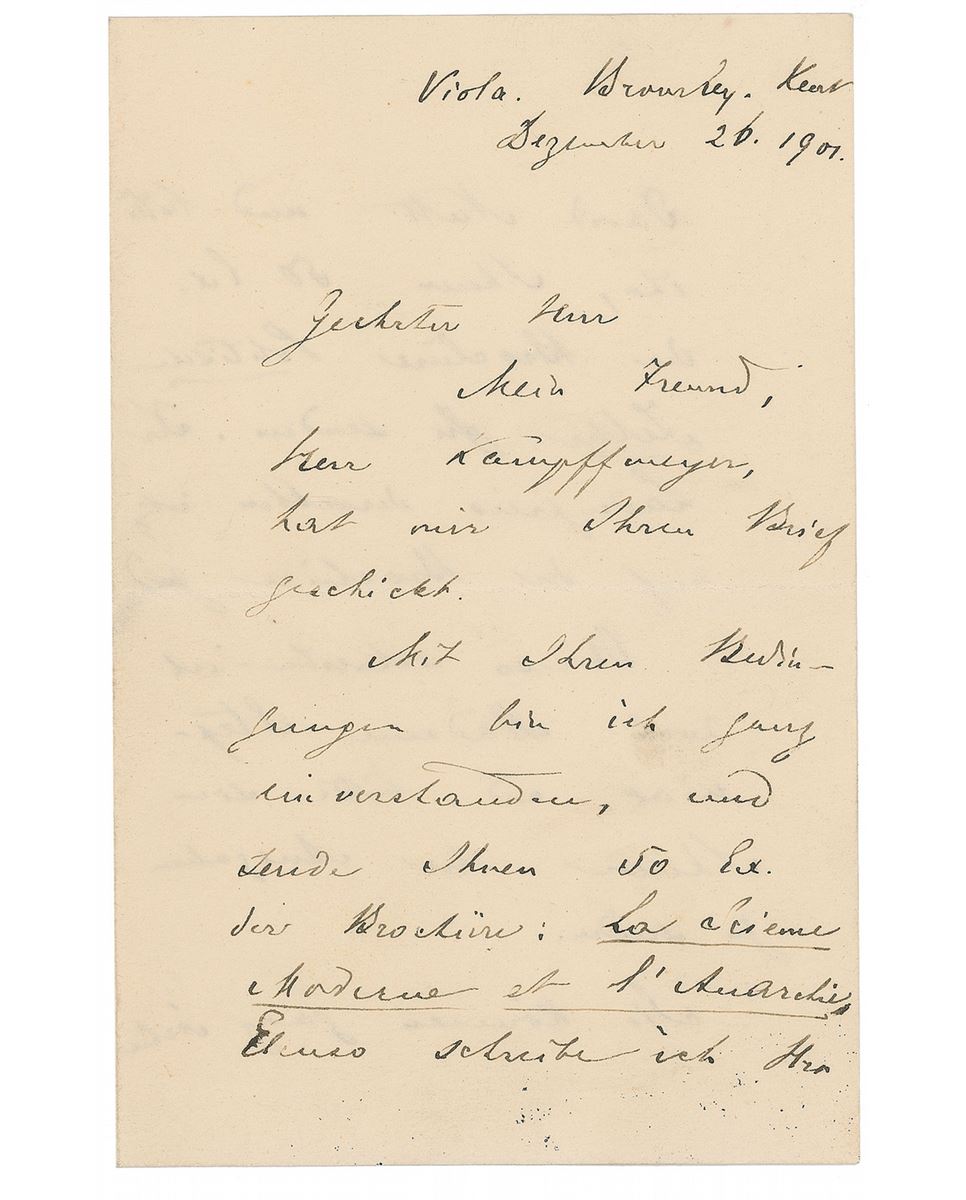 Viola. Bromley. Kent
Dezember 26. 1901.
Geehrter Herr
Mein Freund,
Herr Kampffmeyer,
hat mir Ihren Brief
geschickt.
Mit Ihren Bedin-
gungen bin ich ganz
einverstanden, und
sende Ihnen 50 Ex.
der Brochüre: La Science
Moderne et l'Anarchie,
Ebenso schreibe ich Hrn